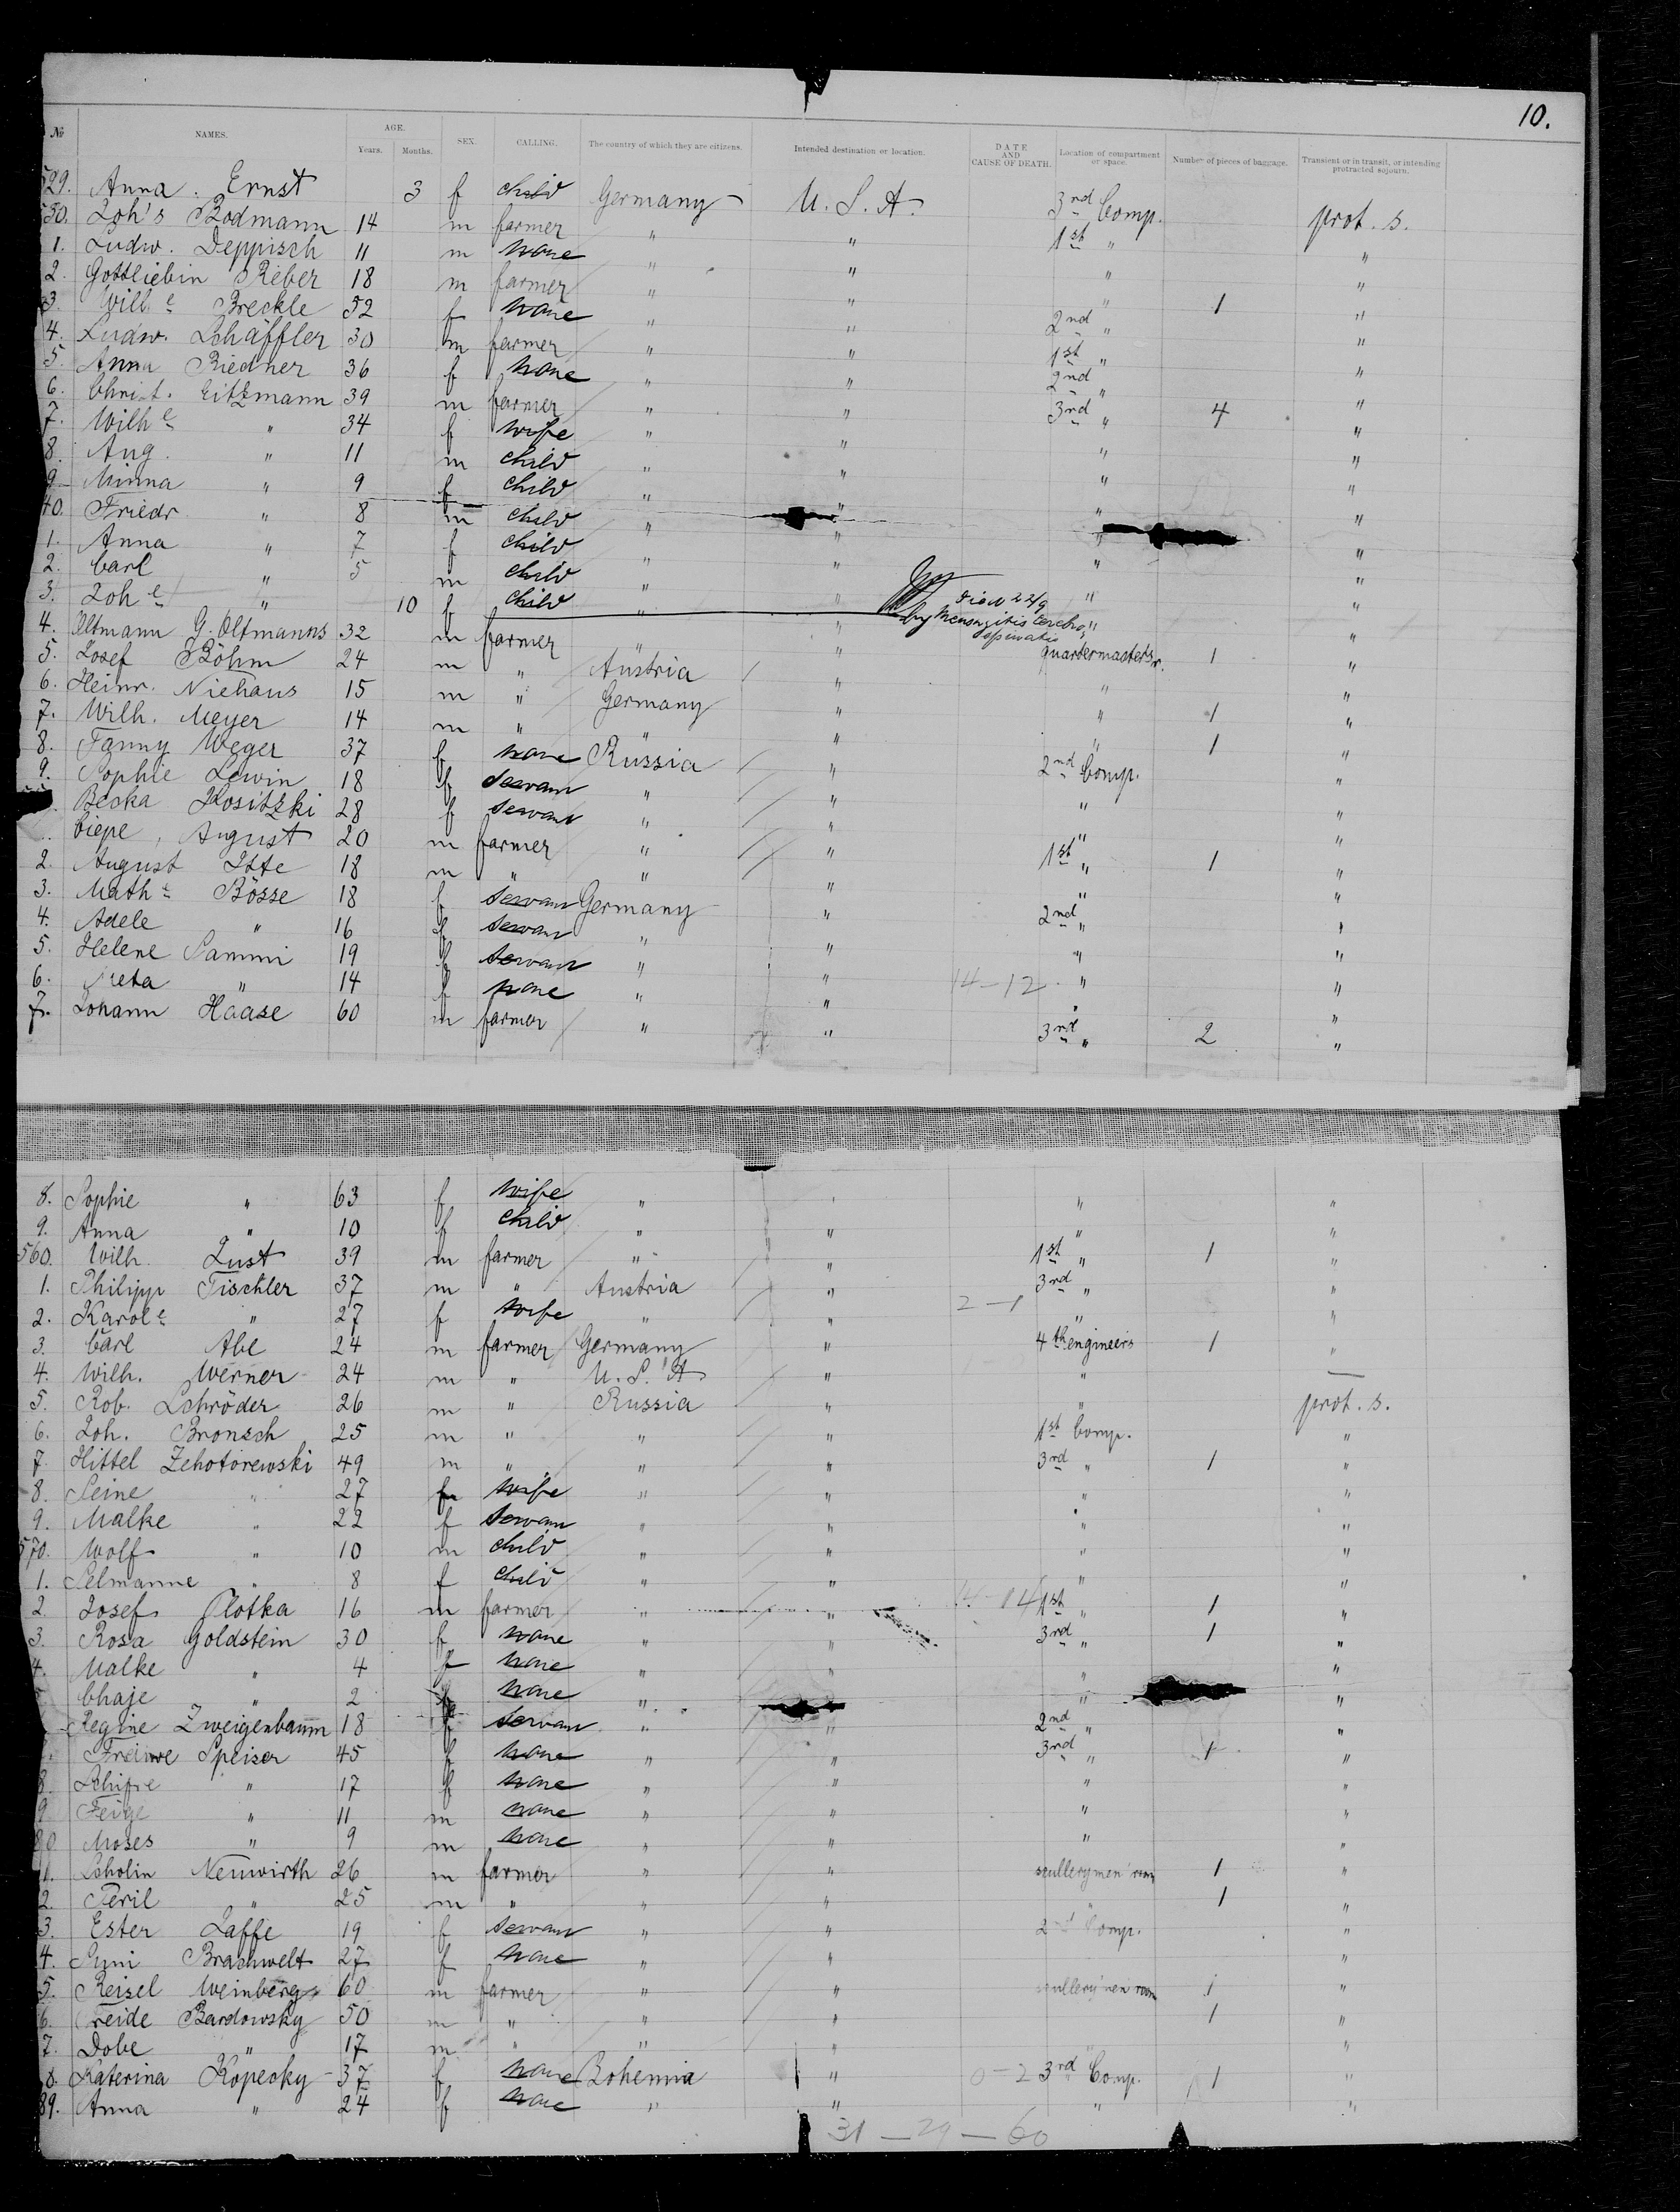 10.
№ NAMES. AGE. Years. Months. SEX. CALLING. The country of which they are citizens. Intended destination or location. DATE AND CAUSE OF DEATH. Location of compartment or space. Number of pieces of baggage. Transient or in transit, or intending protracted sojourn.
529. Anna . Ernst 3 f child Germany U. S. A. 3rd Comp. prot. s.
530. Joh's Bodmann 14 m farmer " " 1st " "
1. Ludw. Deppisch 11 m none " " " "
2. Gottliebin Reber 18 m farmer " " " 1 "
3. Wilh e Breckle 52 f none " " 2nd " "
4. Ludw. Schäffler 30 m farmer " " 1st " "
5. Anna Riedner 36 f none " " 2nd " "
6. Christ. Eitzmann 39 m farmer " " 3rd " 4 "
7. Wilh e " 34 f wife " " " "
8. Aug. " 11 m child " " " "
9 Minna " 9 f child " " " "
40. Friedr " 8 m child " " " "
1. Anna " 7 f child " " " "
2. Carl " 5 m child " " " "
3. Joh e " 10 f child " " died 22/9 by Meningitis cerebro " "
4. Oltmann G. Oltmanns 32 m farmer " " quartermasters r. 1 "
5. Josef Böhm 24 m " Austria " " "
6. Heinr. Niehaus 15 m " Germany " " 1 "
7. Wilh. Meyer 14 m " " " " 1 "
8. Fanny Weger 37 f none Russia " 2nd Comp. "
9. Sophie Lewin 18 f servant " " " "
Beska Kositzki 28 f servant " " " "
Ciepe, August 20 m farmer " " 1st " 1 "
2. August Itte 18 m " " " " "
3. Math e Bösse 18 f servant Germany " 2nd " "
4. Adele " 16 f servant " " " "
5. Helene Sammi 19 f servant " " " "
6. Meta " 14 f none " " 14-12 " "
7. Johann Haase 60 m farmer " " 3rd " 2 "
8. Sophie " 63 f wife " " " "
9. Anna " 10 f child " " " "
560. Wilh. Lust 39 m farmer " " 1st " 1 "
1. Philipp Tischler 37 m " Austria " 3rd " "
2. Karol e " 27 f wife " " 2-1 " "
3. Carl Abe 24 m farmer Germany " 4th engineers 1 "
4. Wilh. Werner 24 m " U. S. A " " —
5. Rob. Schröder 26 m " Russia " " prot. s.
6. Joh. Bronsch 25 m " " " 1st Comp. "
7. Hittel Zehotorewski 49 m " " " 3rd " 1 "
8. Seine " 27 f wife " " " "
9. Malke " 22 f servant " " " "
570. Wolf " 10 m child " " " "
1. Selmanne " 8 f child " " " "
2. Josef Plotka 16 m farmer " " 1st " 1 "
3. Rosa Goldstein 30 f none " " 3rd " 1 "
4. Malke " 4 f none " " " "
Chaje " 2 f none " " " "
Regine Zweigenbaum 18 f servant " " 2nd " "
Speiser 45 f none " " 3rd " 1 "
8. Schifre " 17 f none " " " "
9 Feige " 11 m none " " " "
80 Moses " 9 m none " " " "
1. Scholin Neuwirth 26 m farmer " " scullerymen room 1 "
2. Peril " 25 m " " " " 1 "
3. Ester Jaffe 19 f servant " " 2nd Comp. "
4. Simi Braschwelt 27 f none " " "
5. Reisel Weinberg 60 m farmer " " scullerymen room 1 "
6. Freide Bardowsky 50 m " " " 1 "
7. Dobe " 17 m " " " "
8. Katerina Kopecky 37 f none Bohemia " 0-2 3rd Comp. 1 "
89. Anna " 24 f none " " " "
31 — 29 — 60